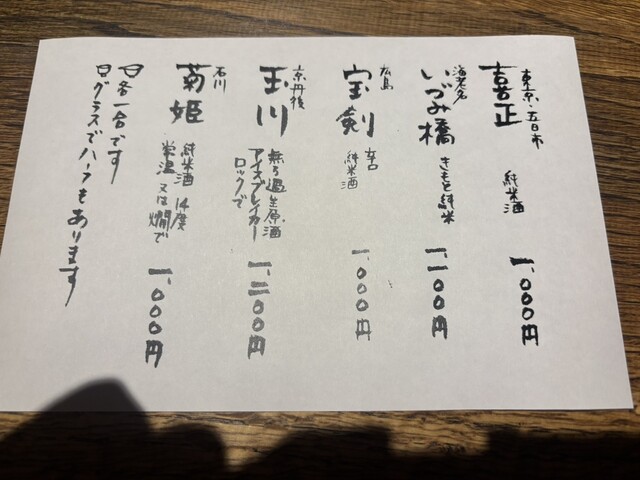 東京・五日市
喜正
純米酒
一、〇〇〇円
海老名
いづみ橋
きもと純米
一、一〇〇円
広島
宝剣
辛口
純米酒
一、〇〇〇円
京丹後
玉川
無ろ過生原酒
アイスブレイカー
ロックで
一、二〇〇円
石川
菊姫
純米酒 14度
常温 又は燗で
一、〇〇〇円
各一合です
グラスでハーフもあります